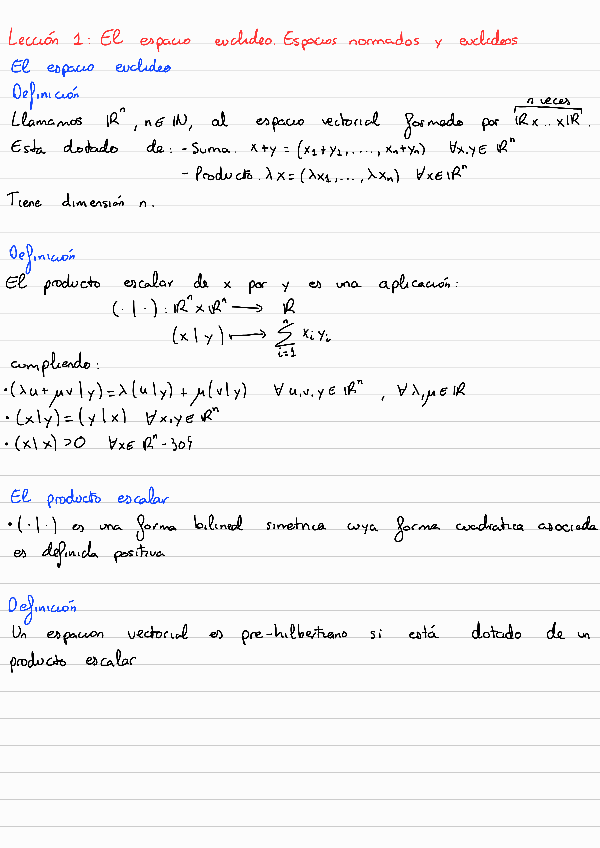 Lección 1: El espacio euclídeo. Espacios normados y euclídeos
El espacio euclídeo
Definición
n veces
Llamamos ℝⁿ, n∈ℕ, al espacio vectorial formado por ℝx...xℝ.
Esta dotado de: - Suma. x+y = (x₁+y₁, ..., xₙ+yₙ) ∀x,y∈ℝⁿ
- Producto. λx = (λx₁, ..., λxₙ) ∀x∈ℝⁿ
Tiene dimensión n.
Definición
El producto escalar de x por y es una aplicación:
(·|·): ℝⁿxℝⁿ → ℝ
(x|y) ⟼ ∑ⁿᵢ₌₁ xᵢyᵢ
cumpliendo:
·(λu+μv|y) = λ(u|y) + μ(v|y) ∀u,v,y∈ℝⁿ, ∀λ,μ∈ℝ
·(x|y) = (y|x) ∀x,y∈ℝⁿ
·(x|x) >0 ∀x∈ℝⁿ-{0}
El producto escalar
·(·|·) es una forma bilineal simétrica cuya forma cuadrática asociada
es definida positiva
Definición
Un espacion vectorial es pre-hilbertiano si está dotado de un
producto escalar